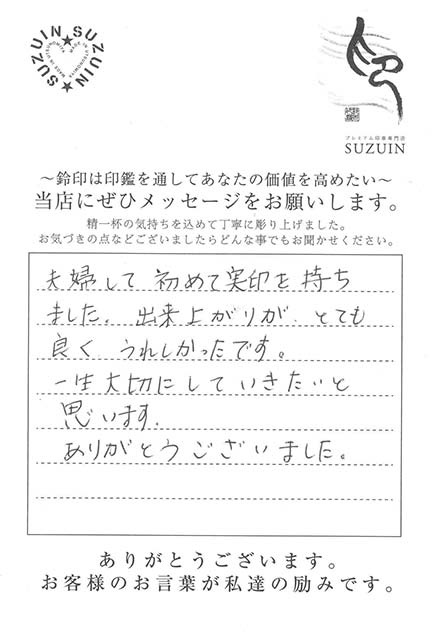 SUZUIN★SUZUIN★SUZUIN★
プレミアム印章専門店
SUZUIN
～鈴印は印鑑を通してあなたの価値を高めたい～
当店にぜひメッセージをお願いします。
精一杯の気持ちを込めて丁寧に彫り上げました。
お気づきの点などございましたらどんな事でもお聞かせください。
夫婦して 初めて実印を持ち
ました。出来上がりが、とても
良く うれしかったです。
一生大切にしていきたいと
思います。
ありがとうございました。
ありがとうございます。
お客様のお言葉が私達の励みです。